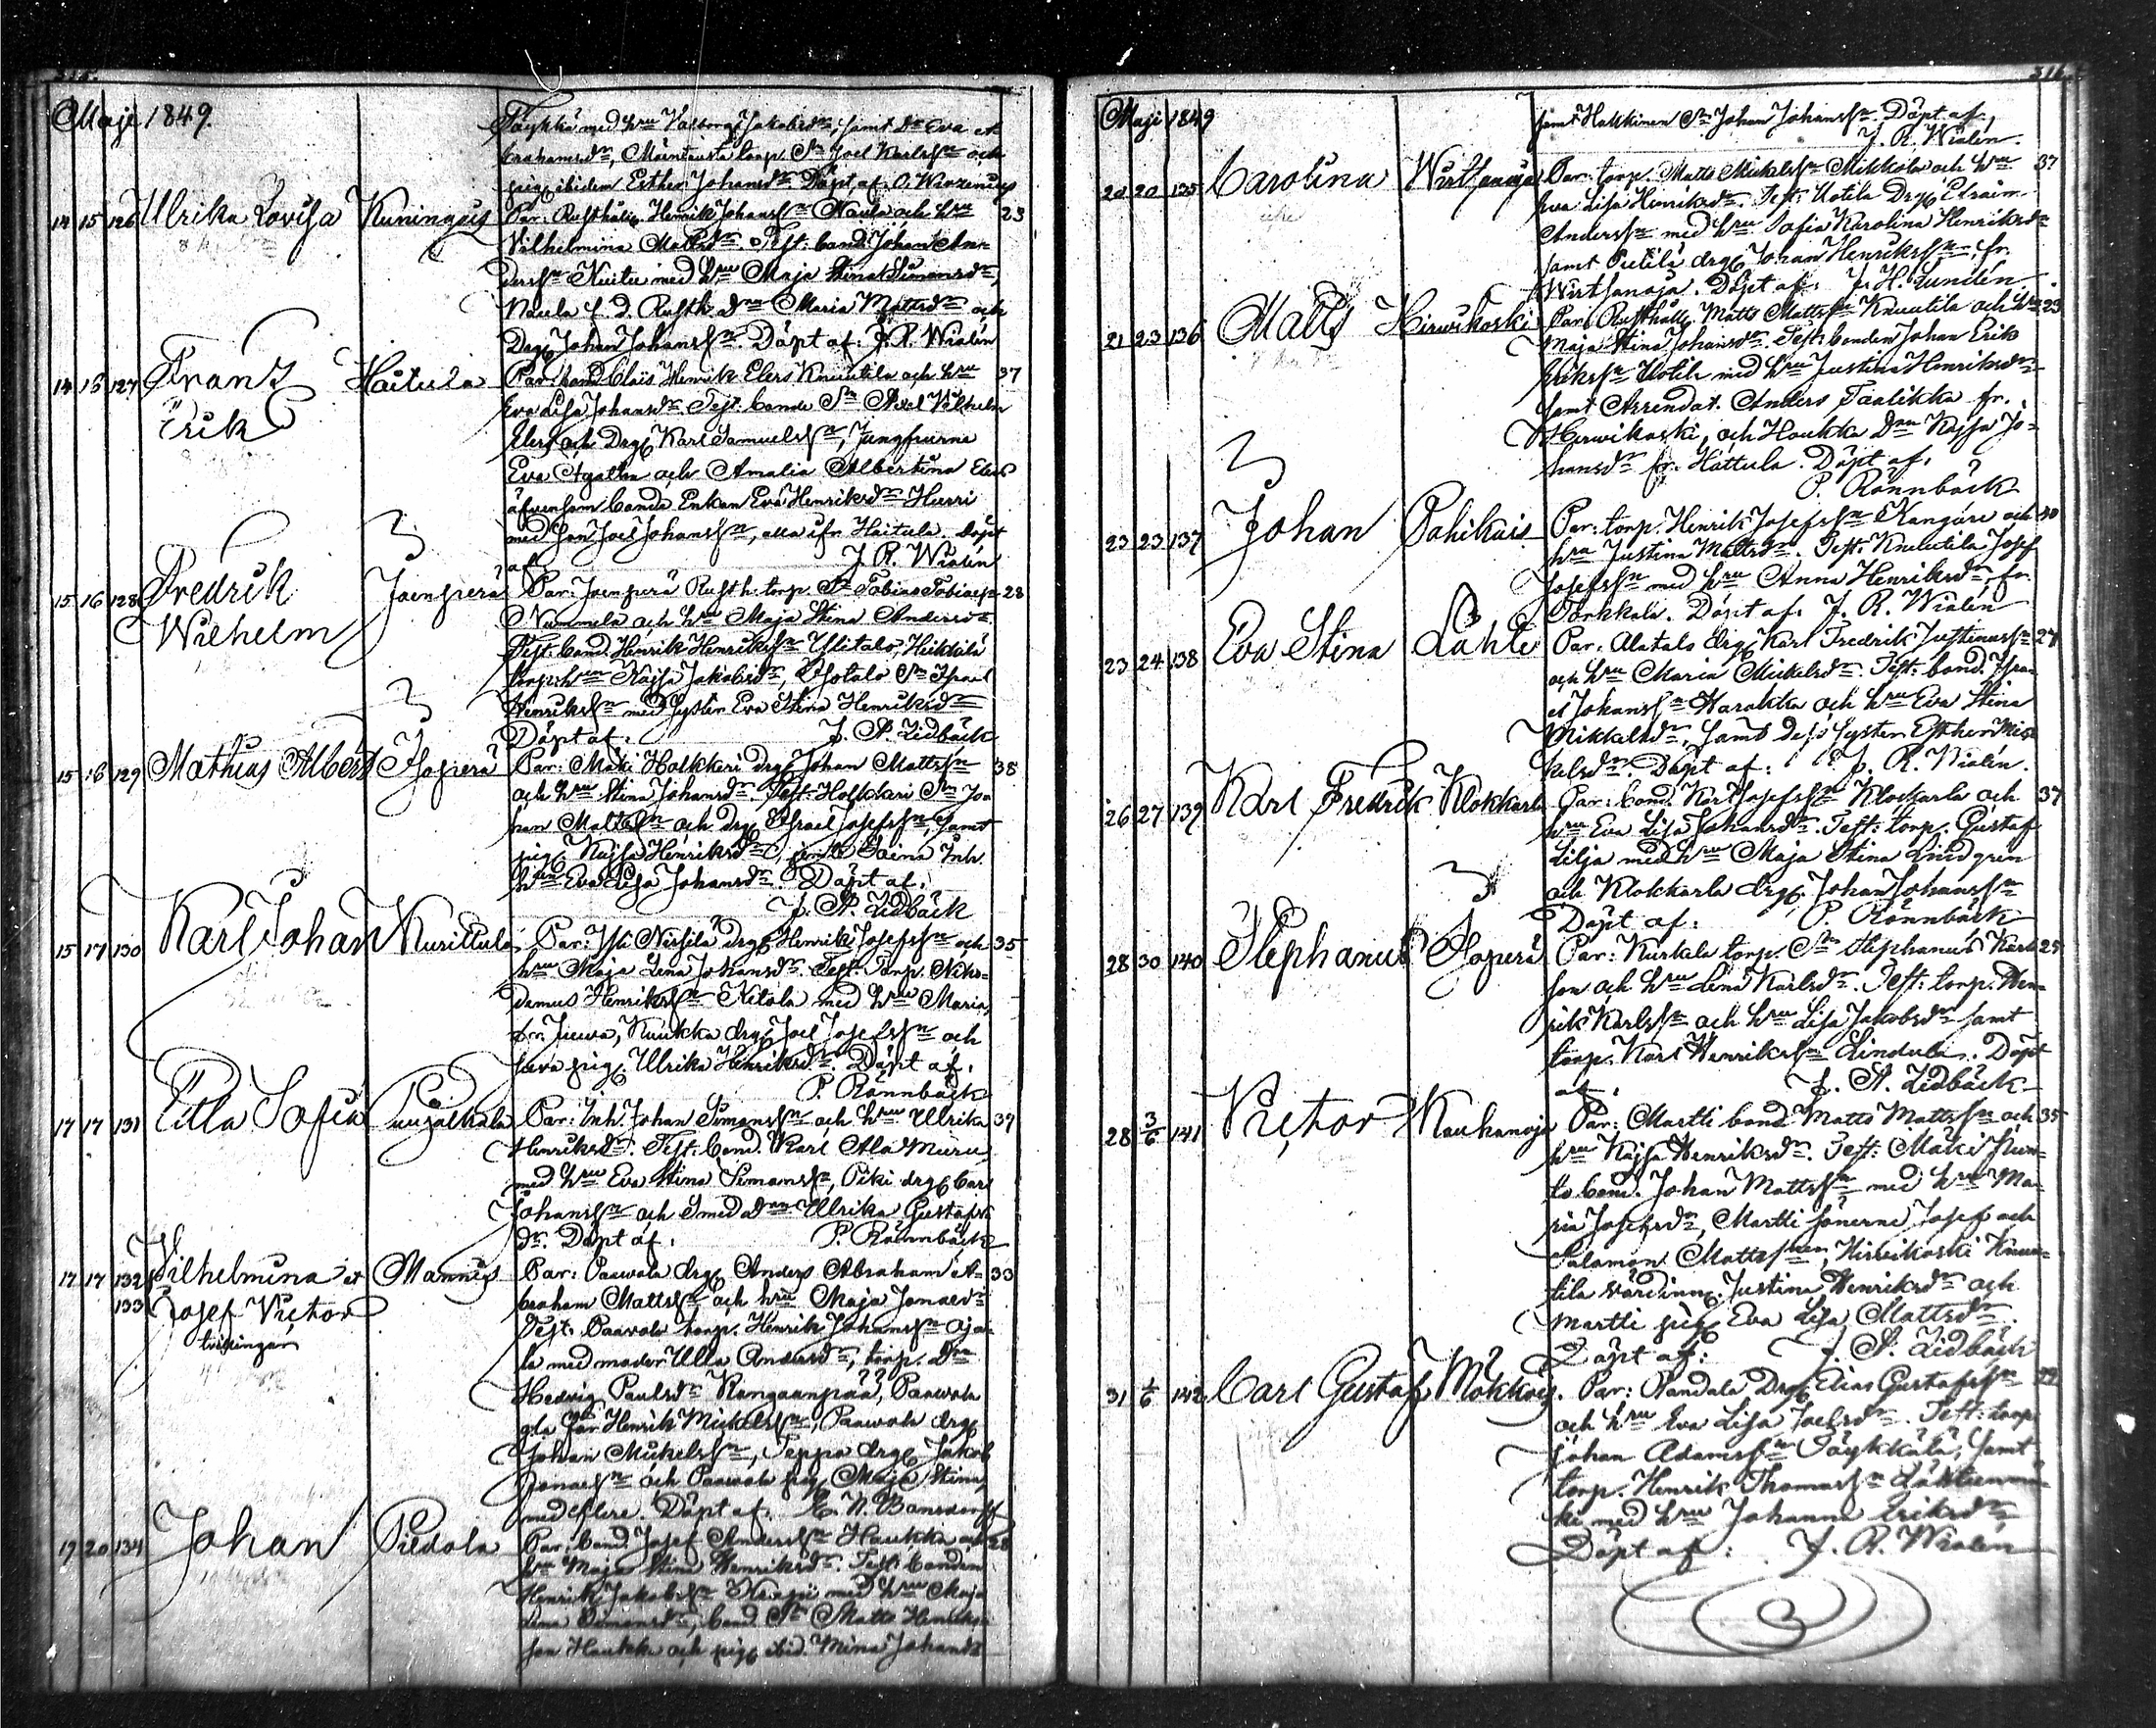 Maji 1849.
Töykkä med hru Walborg Jakobsdr, samt dr Eva
brahamsdr, torp. Sn Joel Karlssn och
pig. ibidem Esther Johansdr. Döpt af.
14 15 126 Ulrika Lovisa Kuningus Par: Rusthåll. Henrik Johanssn Naula och hru 23
Vilhelmina Mattsdr. Test: bond. Johan An-
derssn Knuti med hru Maja Stina Simonsdr,
Naula f. d. Rusth. dm Maria Mattsdr och
Drg Johan Johanssn. Döpt af: J. R. Wialén
14 16 127 Frans Haitula Par: bond. Claës Henrik Elers Knuutila och hru 37
Erik Eva Lisa Johansdr. Test: bonde Sn Axel Vilhelm
Elers och Drg Karl Samuelssn, Jungfrurna
Eva Agatha och Amalia Albertina Elers
äfvensom bonde Enkan Eva Henriksdr Hurri
med son Joel Johanssn, alla ifr. Haitula. Döpt
af. J. R. Wialén
15 16 128 Fredrik Joenperä Par: Joenperä Rusth. torp. Sn Tobias Tobiass 28
Wilhelm Nummela och hru Maja Stina Andersdr.
Test: bond. Henrik Henrikssn Ylitalo, Heikkilä
torp. hru Kajsa Jakobsdr, Isotalo Sn Israel
Henrikssn med syster Eva Stina Henriksdr
Döpt af: J. A. Lidbäck
15 16 129 Mathias Albert Isoperä Par: Mäki Holkkeri drg Johan Mattssn 38
och hru Stina Johansdr. Test: Holkkeri Sn Jo-
han Mattssn och drg Israel Josefssn, samt
pig. Kajsa Henriksdr, jemte Inh.
hru Eva Lisa Johansdr. Döpt af.
J. A. Lidbäck
15 17 130 Karl Johan Kurittula Par: Yli Nissilä drg Henrik Josefssn och 35
hru Maja Lena Johansdr. Test: Torp. Niko-
demus Henrikssn Kitola med hru Maria,
Kuukka drg Joel Josefssn och
pig. Ulrika Henriksdr. Döpt af.
P. Rönnbäck
17 17 131 Ulla Sofia Puujalkala Par: Inh. Johan Simonssn och hru Ulrika 39
Henriksdr. Test: bond. Karl Ala Muru
med hru Eva Stina Simonssn, Piki drg Carl
Johanssn och Smed dm Ulrika Gustafs
dr. Döpt af. P. Rönnbäck
17 17 132 Vilhelmina et Mannis Par: Paavola drg Anders Abraham A- 33
133 Josef Victor braham Mattssn och hru Maja Jonaedr
tvillingar Test: Paavola torp. Henrik Johanssn Oja-
la med moder Ulla Andersdr, torp. dm
Hedvig Paulsdr Kangaanpää, Paavola
gla far Henrik Mickelssn, Paavola drg
Johan Mickelssn, Seppä drg Jakob
Jonaessn och Paavola pig Maja Stina
med flere. Döpt af. Bonsdorff
19 20 134 Johan Piedola Par: bond. Josef Anderssn Haukka och 28
hru Maja Stina Henriksdr. Test: bonden
Henrik Jakobssn med hru Maja
Lena Simonsdr, bond. Sn Matts Henriks-
son Haukka och pig ibid. Mina Johansdr
311.
Maji 1849
samt Hakkinen Sn Johan Johanssn. Döpt af,
J. R. Wialén.
20 20 135 Carolina Wirtsanoja Par: torp. Matts Mickelssn Mikkola och hru 37
Eva Lisa Henriksdr. Test: Uotila Drg Efraim
Anderssn med hru Sofia Karolina Henriksdr
samt Pietilä drg Johan Henrikssn, fr.
Wirtsanoja. Döpt af: J. H. Lundén
21 23 136 Matts Hirwikoski Par: Rusthåll. Matts Mattssn Knuutila och hru 23
Maja Stina Johansdr. Test: bonden Johan Erik
Erikssn Uotila med hru Justina Henriksdr
samt Arrendat. Anders Taalikka fr.
Hirwikoski, och Houkka Dm Kajsa Jo-
hansdr fr. Hattula. Döpt af.
P. Rönnbäck
23 23 137 Johan Pahikais Par: torp. Henrik Josefssn Kangare och 40
hru Justina Mattsdr. Test: Knuutila Josef
Josefssn med hru Anna Henriksdr, fr.
Torkkala. Döpt af: J. R. Wialén
23 24 138 Eva Stina Lahti Par: Alatalo drg Karl Fredrik Justinussn 27
och hru Maria Mickelsdr. Test: bond. Isra-
el Johanssn Harakka och hru Eva Stina
Mikkelsdr, samt dess syster Esther Mic-
kelsdr. Döpt af: J. R. Wialén.
26 27 139 Karl Fredrik Klokkarla Par: bond. Karl Josefssn Klockarla och 37
hru Eva Lisa Johansdr. Test: torp. Gustaf
Lilja med hru Maja Stina Lindgren
och Klokkarla drg. Johan Johanssn
Döpt af: P. Rönnbäck
28 30 140 Stephanus Isoperä Par: Kurkela torp. Sn Stephanus Karls 25
son och hru Lena Karlsdr. Test: torp. Hen-
rik Karlssn och hru Lisa Jakobsdr samt
torp. Karl Henrikssn Lindula. Döpt
af: J. A. Lidbäck
28 3/6 141 Victor Kauhanoja Par: Martti bond Matts Mattssn och 35
hru Kajsa Henriksdr. Test: Mäki Kun-
to bond. Johan Mattssn med hru Ma-
ria Josefsdr, Martti sönerne Josef och
Salomon Mattssn, Hirvikoski Knuu-
tila värdinn. Justina Henriksdr och
Martti pig Eva Lisa Mattsdr.
Döpt af: J. A. Lidbäck
31 1/6 142 Carl Gustaf Mökköis. Par: Nandala Drg Elias Gustafssn 22
och hru Eva Lisa Joelsdr. Test: torp.
Johan Adamssn Töykkälä, samt
torp. Henrik Thomassn
ki med hru Johanna Eriksdr
Döpt af: J. R. Wialén